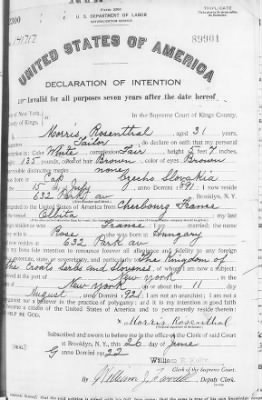 TRIPLICATE
U. S. DEPARTMENT OF LABOR
NATURALIZATION SERVICE
89901
UNITED STATES OF AMERICA
DECLARATION OF INTENTION
Invalid for all purposes seven years after the date hereof
of New York,
In the Supreme Court of Kings County.
County of Kings,
Morris Rosenthal, aged 31 years,
occupation Tailor, do declare on oath that my personal
description is: Color White, complexion Fair, height 5 feet 7 inches,
weight 135 pounds, color of hair Brown, color of eyes Brown
other visible distinctive marks none
I was born in Czecho Slovakia
on the 15 day of July, anno Domini 1891; I now reside
at 632 Park av, Brooklyn, N. Y.
I emigrated to the United States of America from Cherbourg France
on the vessel; my last
foreign residence was France; I am married; the name
of my wife is Rose; she was born in Hungary
and now resides at 632 Park av
It is my bona fide intention to renounce forever all allegiance and fidelity to any foreign
prince, potentate, state, or sovereignty, and particularly to The Kingdom of
the Croats Serbs and Slovenes, of whom I am now a subject;
I arrived at the port of New York, in the
State of New York, on or about the 11 day
of August, anno Domini 1921; I am not an anarchist; I am not a
polygamist nor a believer in the practice of polygamy; and it is my intention in good faith
to become a citizen of the United States of America and to permanently reside therein:
SO HELP ME GOD.
x Morris Rosenthal
Subscribed and sworn to before me in the office of the Clerk of said Court
at Brooklyn, N. Y., this 26 day of June
anno Domini 1922
Clerk of the Supreme Court.
By William J., Deputy Clerk.